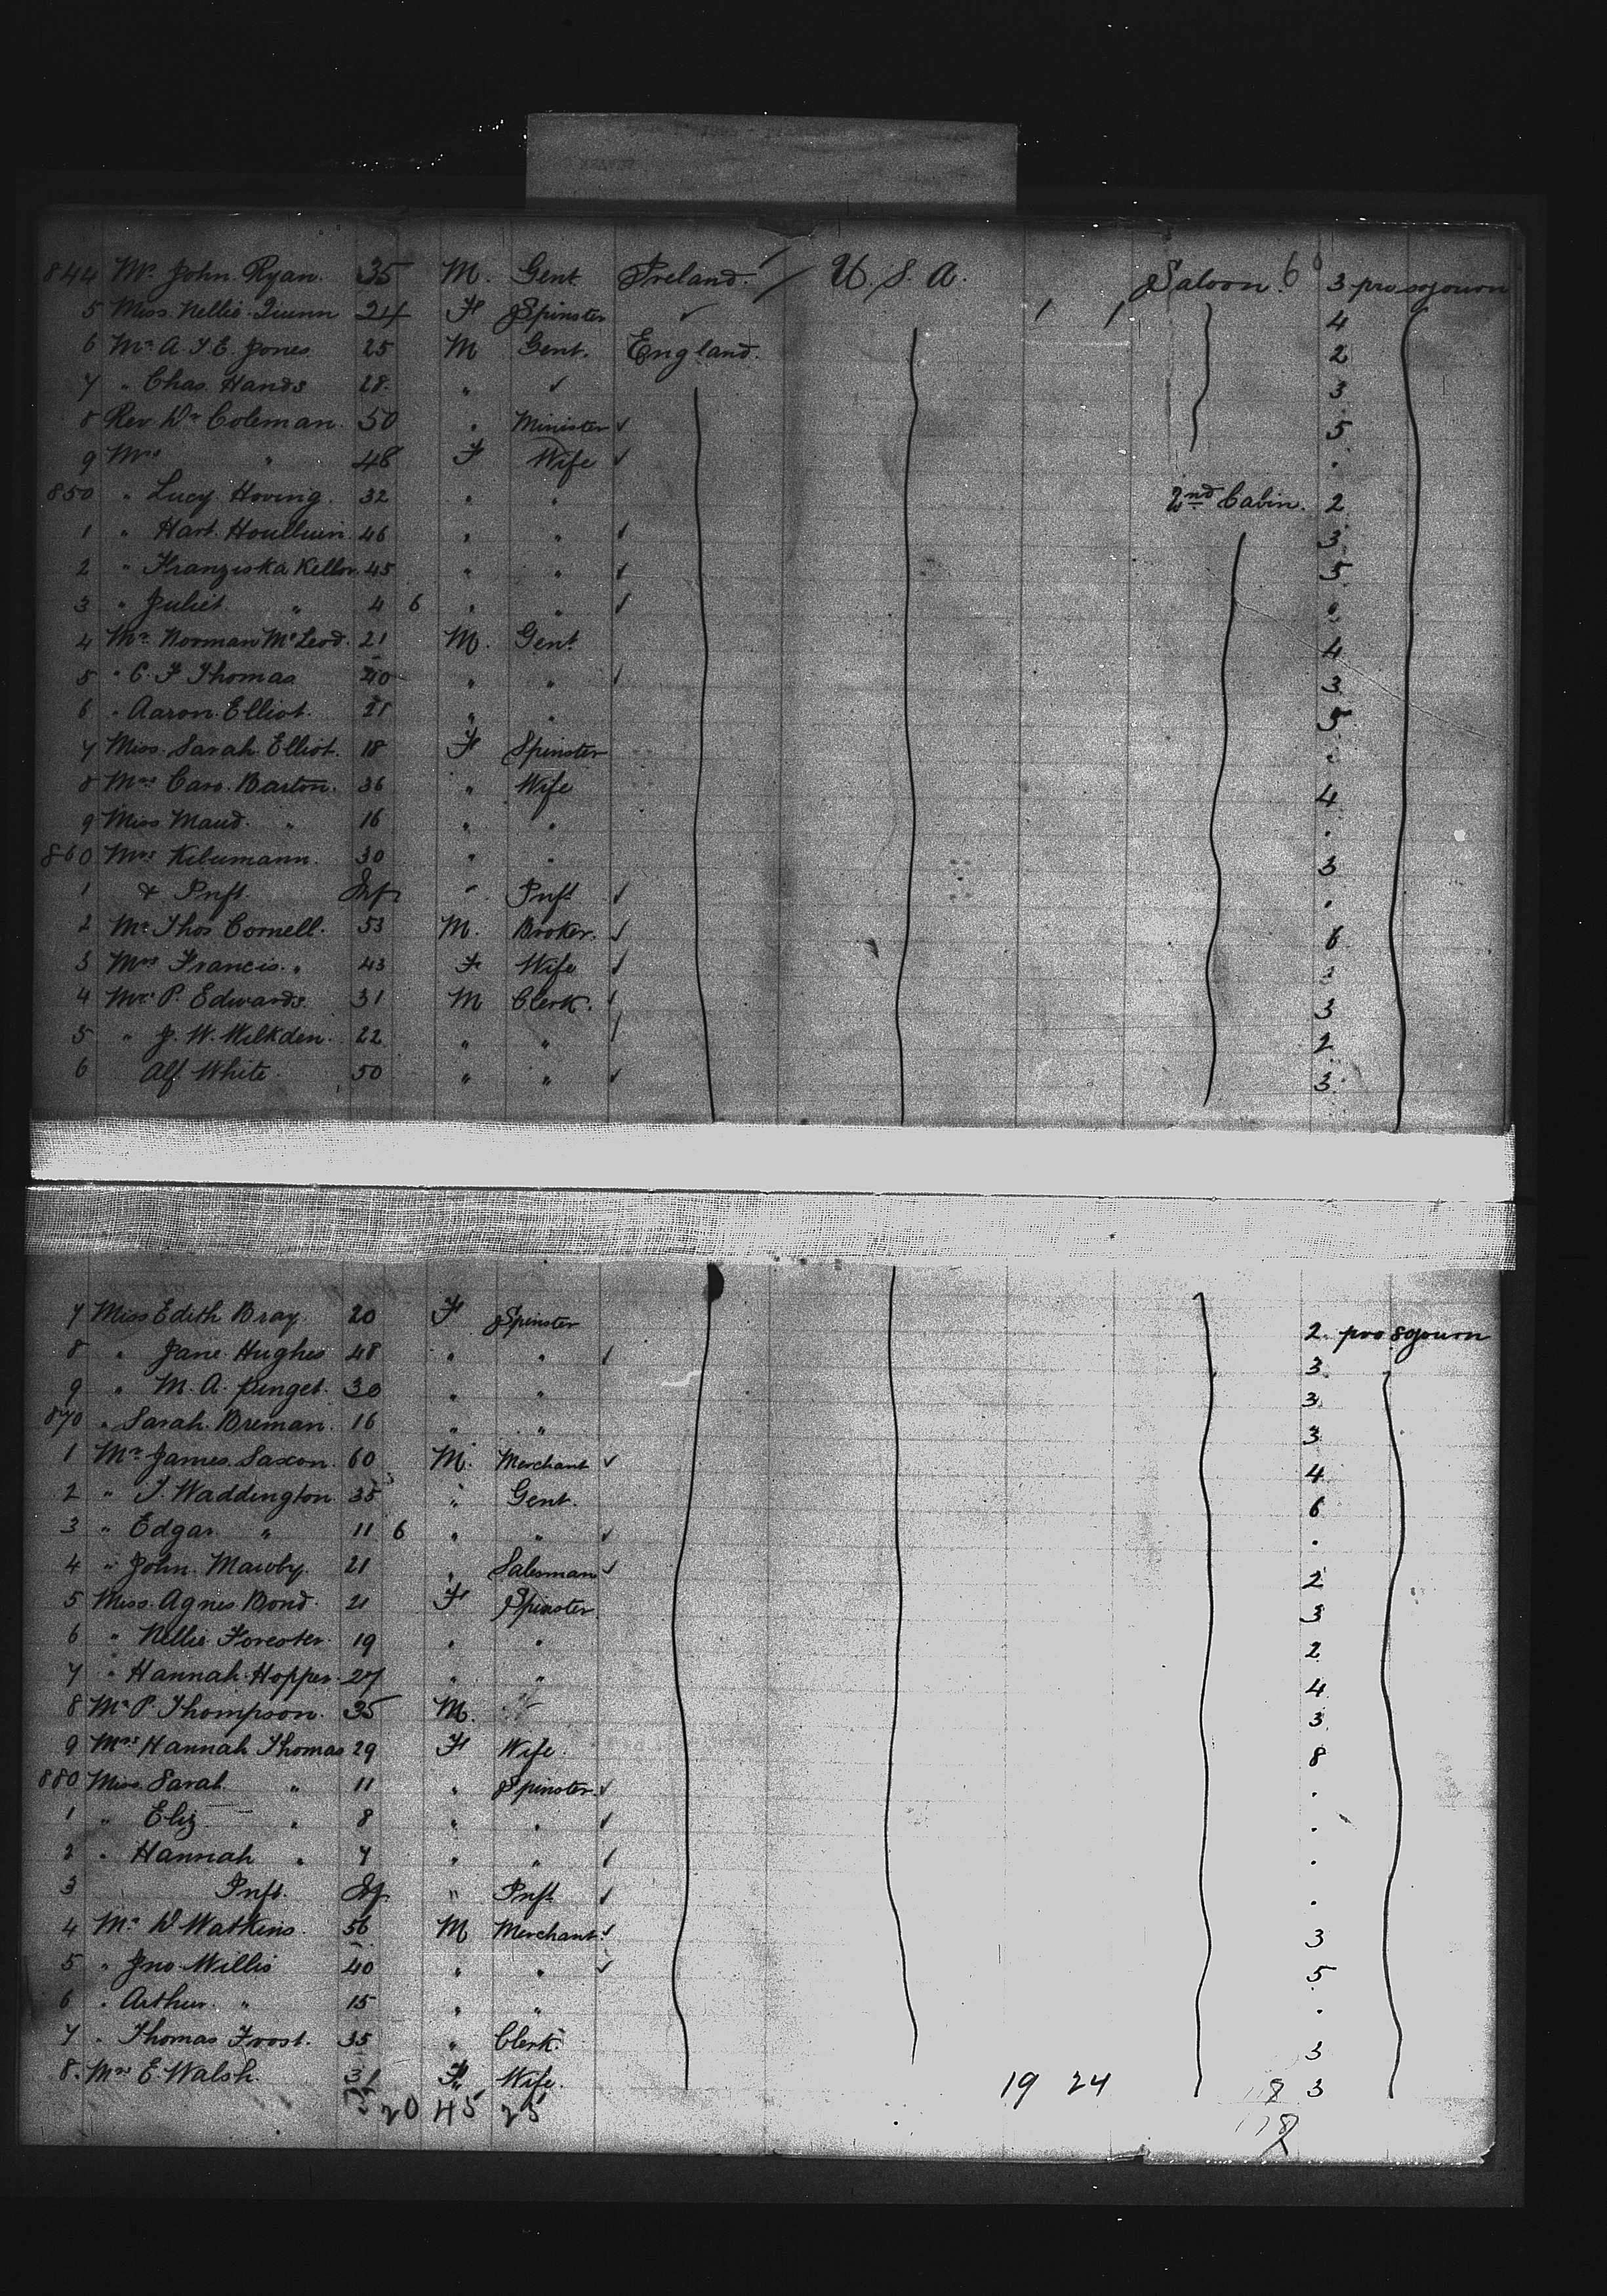 844 Mr. John Ryan. 35 M. Gent. Ireland. U. S. A. Saloon. 6 3 pro sojourn
5 Miss. Nellie Quinn 24 F Spinster ✓ 4
6 Mr. A. T. E. Jones 25 M Gent. England. 2
7 " Chas. Hands 28 " ✓ 3
8 Rev. Dr. Coleman. 50 " Minister ✓ 5
9 Mrs " 48 F Wife ✓ .
850 " Lucy Hoving. 32 " " 2nd Cabin. 2
1 " Hart. 46 " " ✓ 3
2 " Franziska Keller. 45 " " ✓ 5
3 " Juliet " 4 6 " " ✓
4 Mr. Norman McLeod. 21 M. Gent 4
5 " C. F Thomas 40 " " ✓ 3
6 " Aaron. Elliot. 21 " " 5
7 Miss. Sarah Elliot. 18 F Spinster
8 Mrs Caro. Barton. 36 " Wife 4
9 Miss Maud. " 16 " " .
860 Mrs 30 " " 3
1 & Inft. Inf " Inft ✓ .
2 Mr. Thos Cornell. 53 M. Broker. ✓ 6
3 Mrs Francis. " 43 F Wife ✓
4 Mr. P. Edwards. 31 M Clerk. ✓ 3
5 " J. W. Wilkden. 22 " " ✓ 2
6 Alf White. 50 " " ✓ 3
7 Miss Edith Bray. 20 F Spinster 2. pro sojourn
8 " Jane Hughes 48 " " ✓ 3
9 " M. A. Pinget. 30 " " 3
870 " Sarah. Breman. 16 " " 3
1 Mr. James. Saxon. 60 M. Merchant ✓ 4
2 " T. Waddington 35 " Gent. 6
3 " Edgar " 11 6 " " ✓ .
4 " John. Mawby. 21 " Salesman ✓ 2
5 Miss. Agnes. Bond. 21 F Spinster 3
6 " Nellie Forester. 19 " " 2
7 " Hannah. Hopper. 27 " " 4
8 Mr P. Thompson. 35 M. 3
9 Mrs Hannah Thomas 29 F Wife. 8
880 Miss. Sarah " 11 " Spinster. ✓ .
1 " Eliz " 8 " " ✓ .
2 " Hannah " 7 " " ✓ .
3 Inft. Inf. " Inft ✓ .
4 Mr. D Watkins. 56 M Merchant. ✓ 3
5 " Jno Willis 40 " " ✓ 5
6 " Arthur. " 15 " " .
7 " Thomas Frost. 35 " Clerk. 3
8. Mrs E. Walsh. 31 F Wife. 19 24 118 3
20 45 25 118